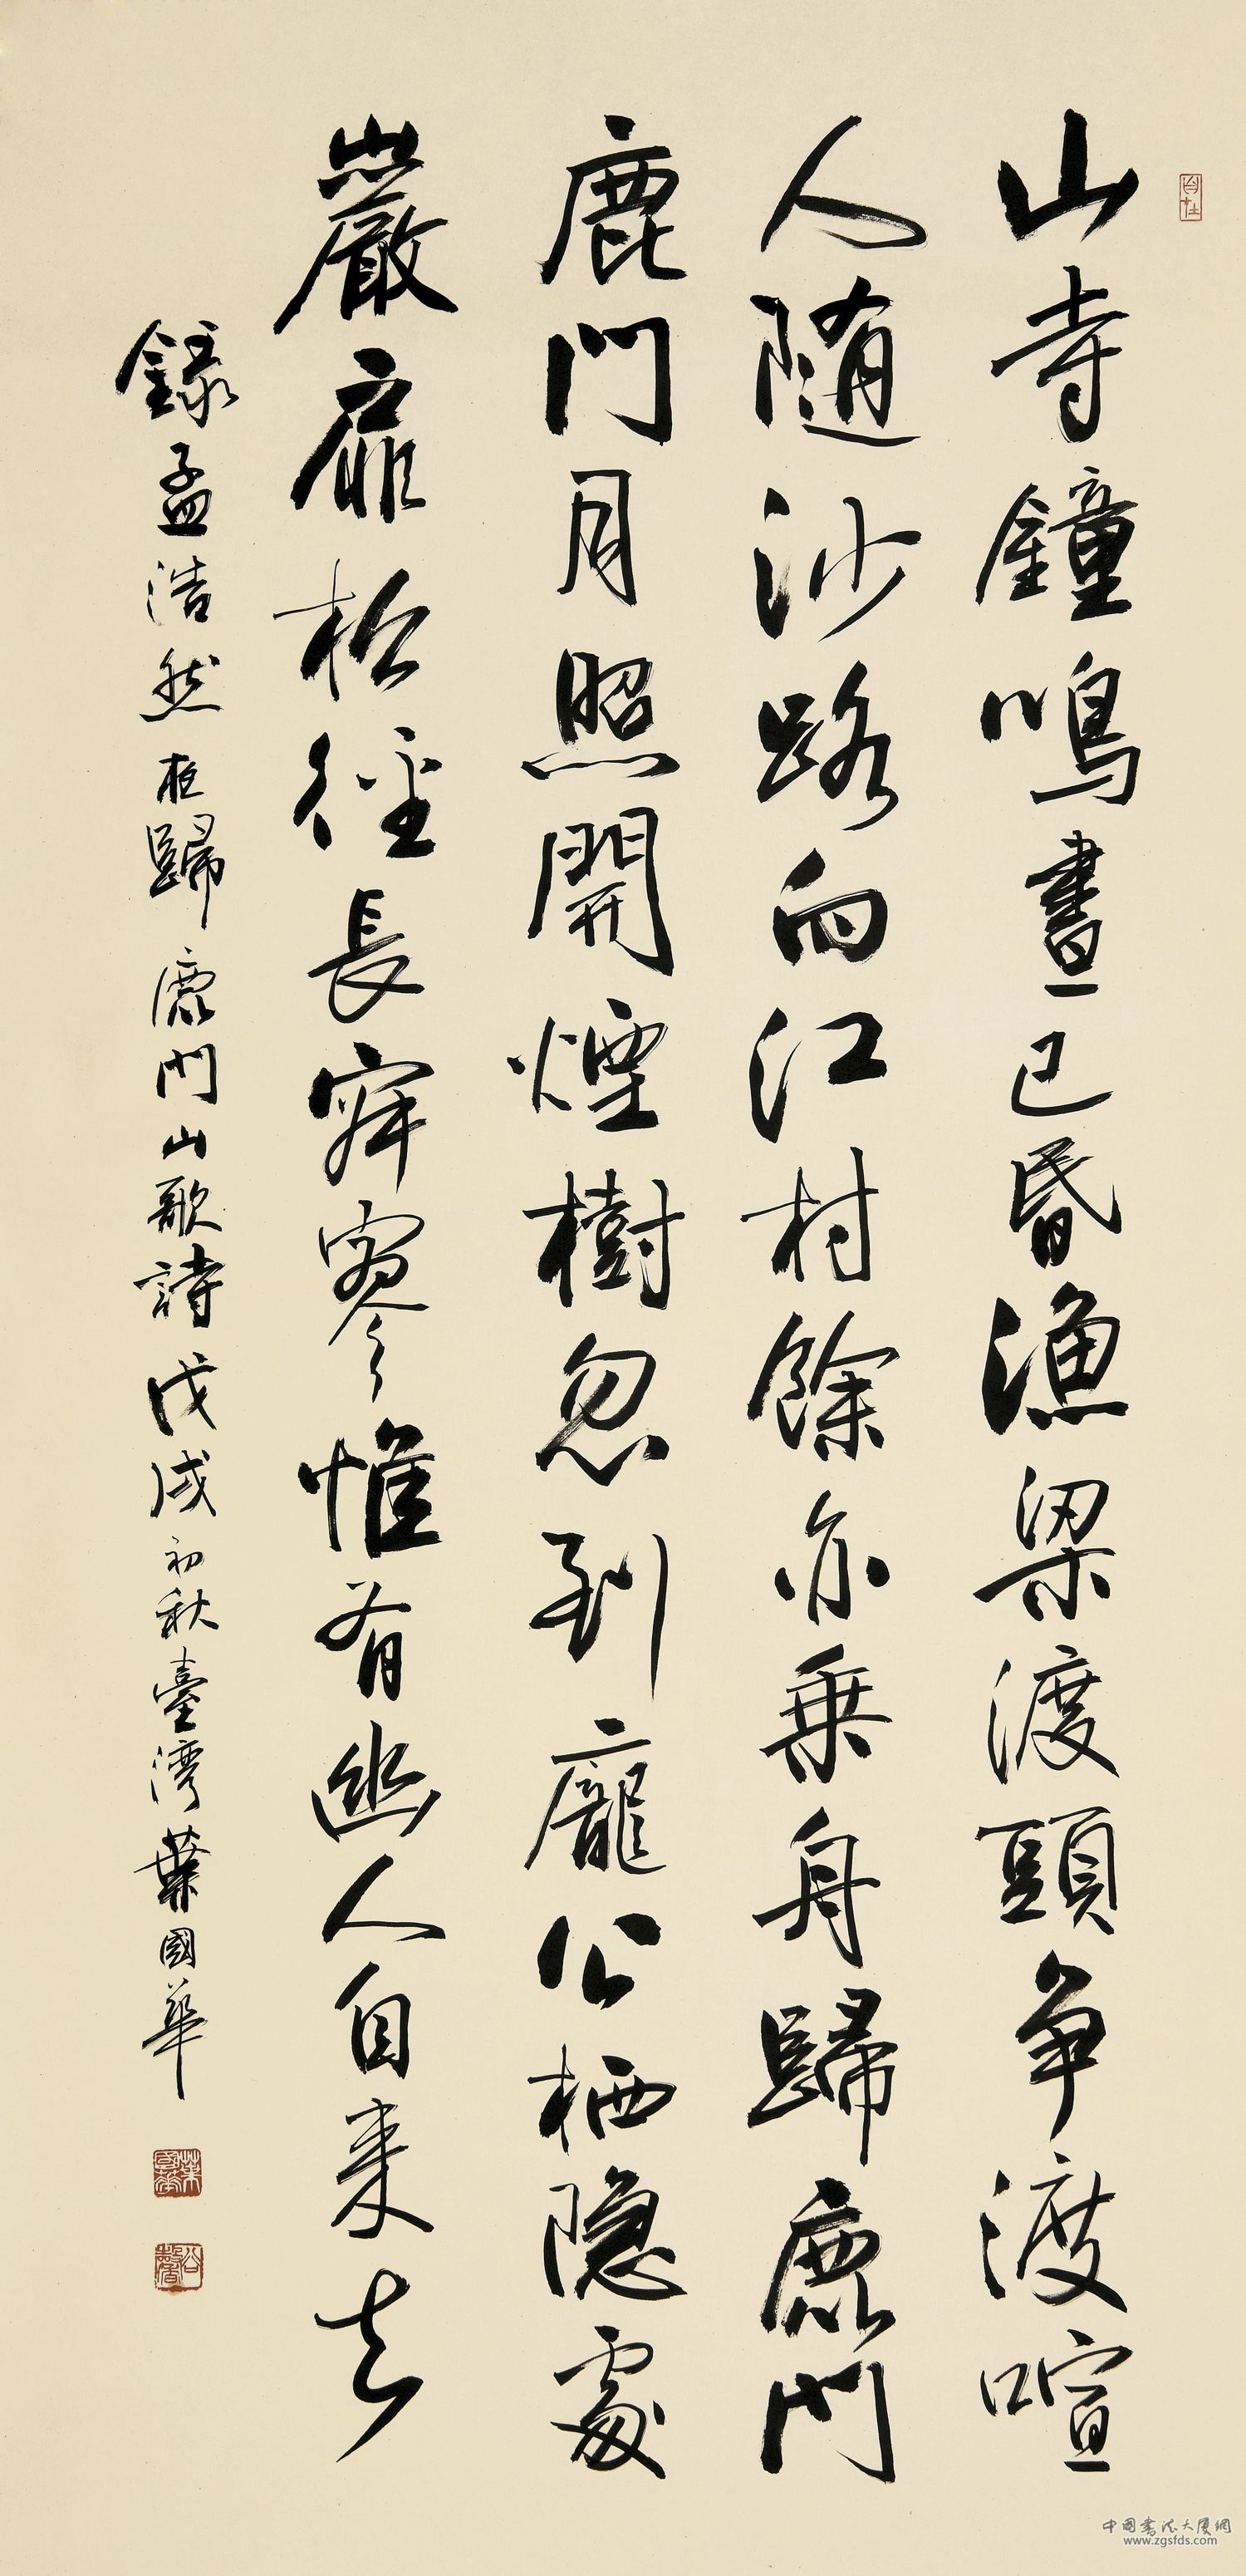 自在
山寺鐘鳴晝已昏漁梁渡頭争渡喧
人随沙路向江村餘亦乗舟歸鹿門
鹿門月照開煙樹忽到龐公栖隐處
巖扉松徑長寂寥惟有幽人自来去
録孟浩然夜歸鹿門山歌詩戊戌初秋臺灣葉國華
葉國華
谷馨
中国书法大厦網
www.zgsfds.com